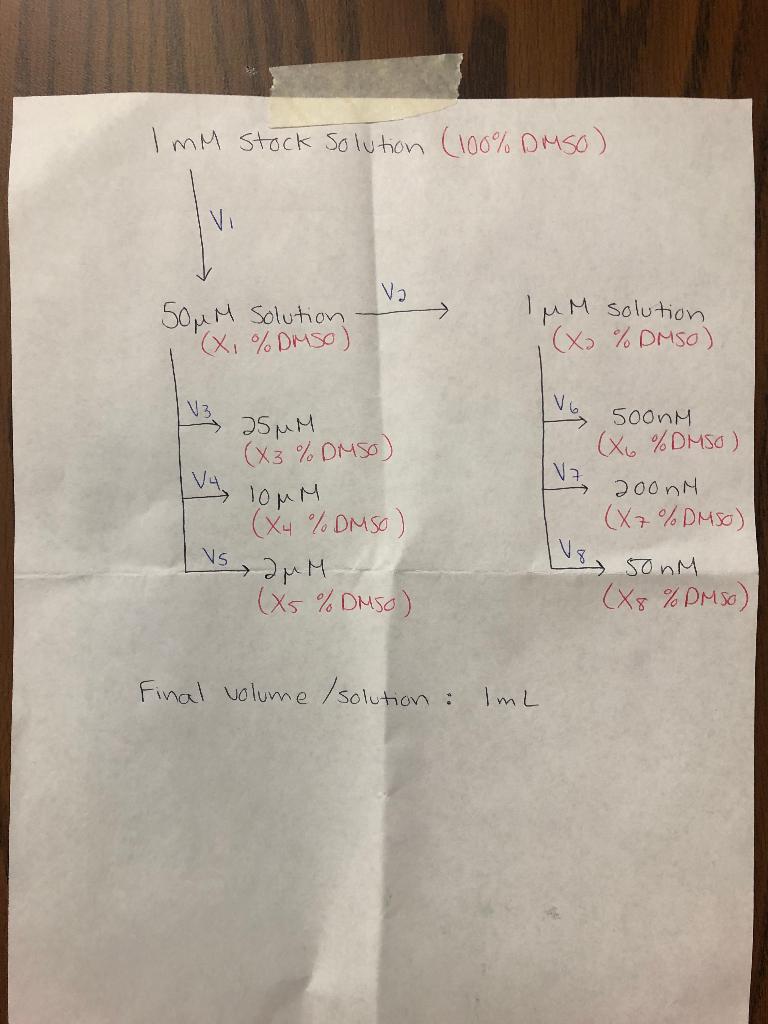 1 mM Stock Solution (100% DMSO)
V1
50µM Solution
(X1 % DMSO)
V2
1 µM solution
(X2 % DMSO)
V3
25µM
(X3 % DMSO)
V4
10µM
(X4 % DMSO)
V5
2µM
(X5 % DMSO)
V6
500nM
(X6 % DMSO)
V7
200nM
(X7 % DMSO)
V8
50nM
(X8 % DMSO)
Final volume /solution : 1mL